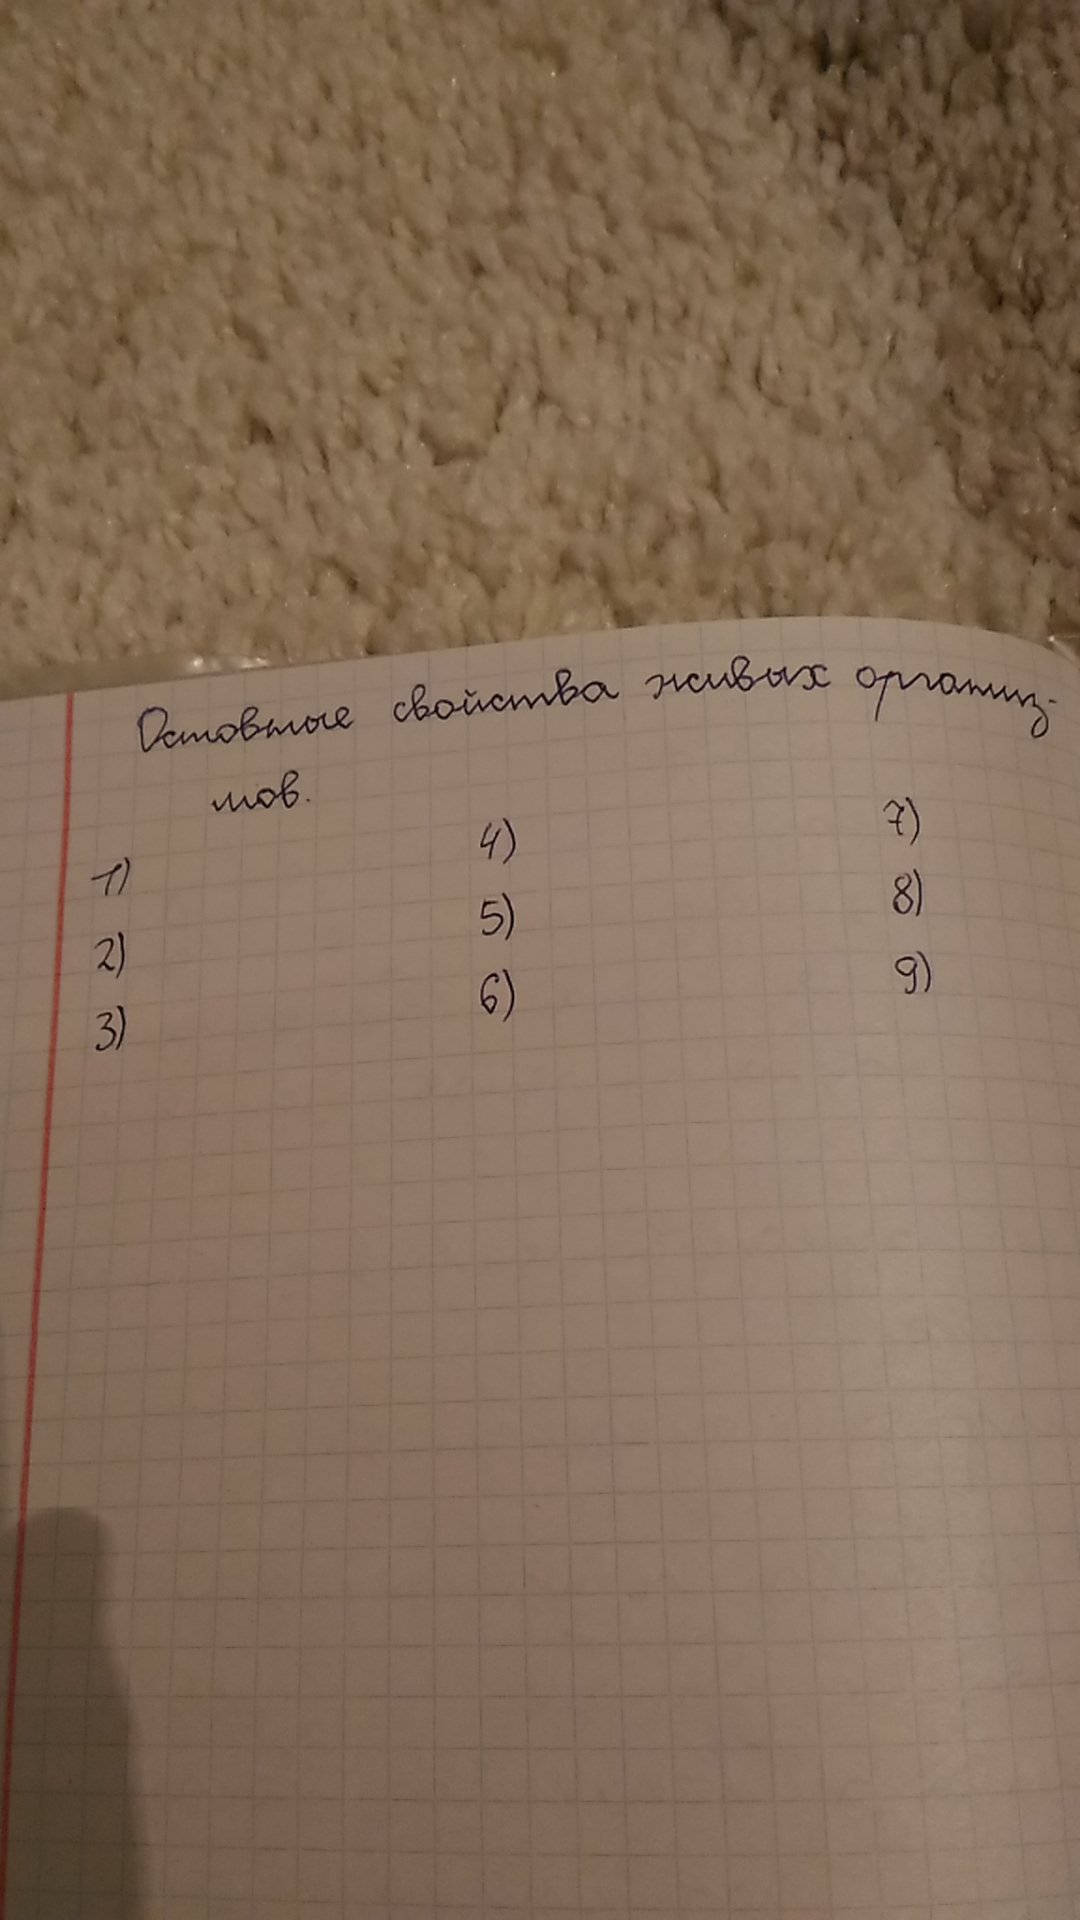 Основные свойства живых организ-
мов.
1) 4) 7)
2) 5) 8)
3) 6) 9)